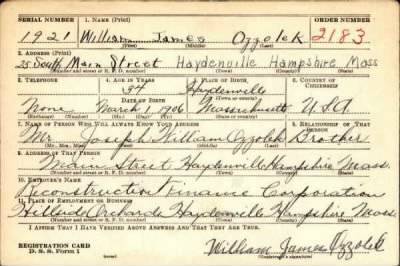 SERIAL NUMBER 1. NAME (Print) ORDER NUMBER
1921 William James Ozzolek 2183
(First) (Middle) (Last)
2. ADDRESS (Print)
25 South Main Street Haydenville Hampshire Mass
(Number and street or R. F. D. number) (Town) (County) (State)
3. TELEPHONE 4. AGE IN YEARS 5. PLACE OF BIRTH 6. COUNTRY OF CITIZENSHIP
34 Haydenville
DATE OF BIRTH (Town or county)
None March 1, 1906 Massachusetts U.S.A
(Exchange) (Number) (Mo.) (Day) (Yr.) (State or country)
7. NAME OF PERSON WHO WILL ALWAYS KNOW YOUR ADDRESS 8. RELATIONSHIP OF THAT PERSON
Mr. Joseph William Ozzolek Brother
(Mr., Mrs., Miss) (First) (Middle) (Last)
9. ADDRESS OF THAT PERSON
Main Street Haydenville Hampshire Mass.
(Number and street or R. F. D. number) (Town) (County) (State)
10. EMPLOYER'S NAME
Reconstruction Finance Corporation
11. PLACE OF EMPLOYMENT OR BUSINESS
Hillside Orchards Haydenville Hampshire Mass.
(Number and street or R. F. D. number) (Town) (County) (State)
I AFFIRM THAT I HAVE VERIFIED ABOVE ANSWERS AND THAT THEY ARE TRUE.
REGISTRATION CARD
D. S. S. Form 1
William James Ozzolek
(Registrant's signature)